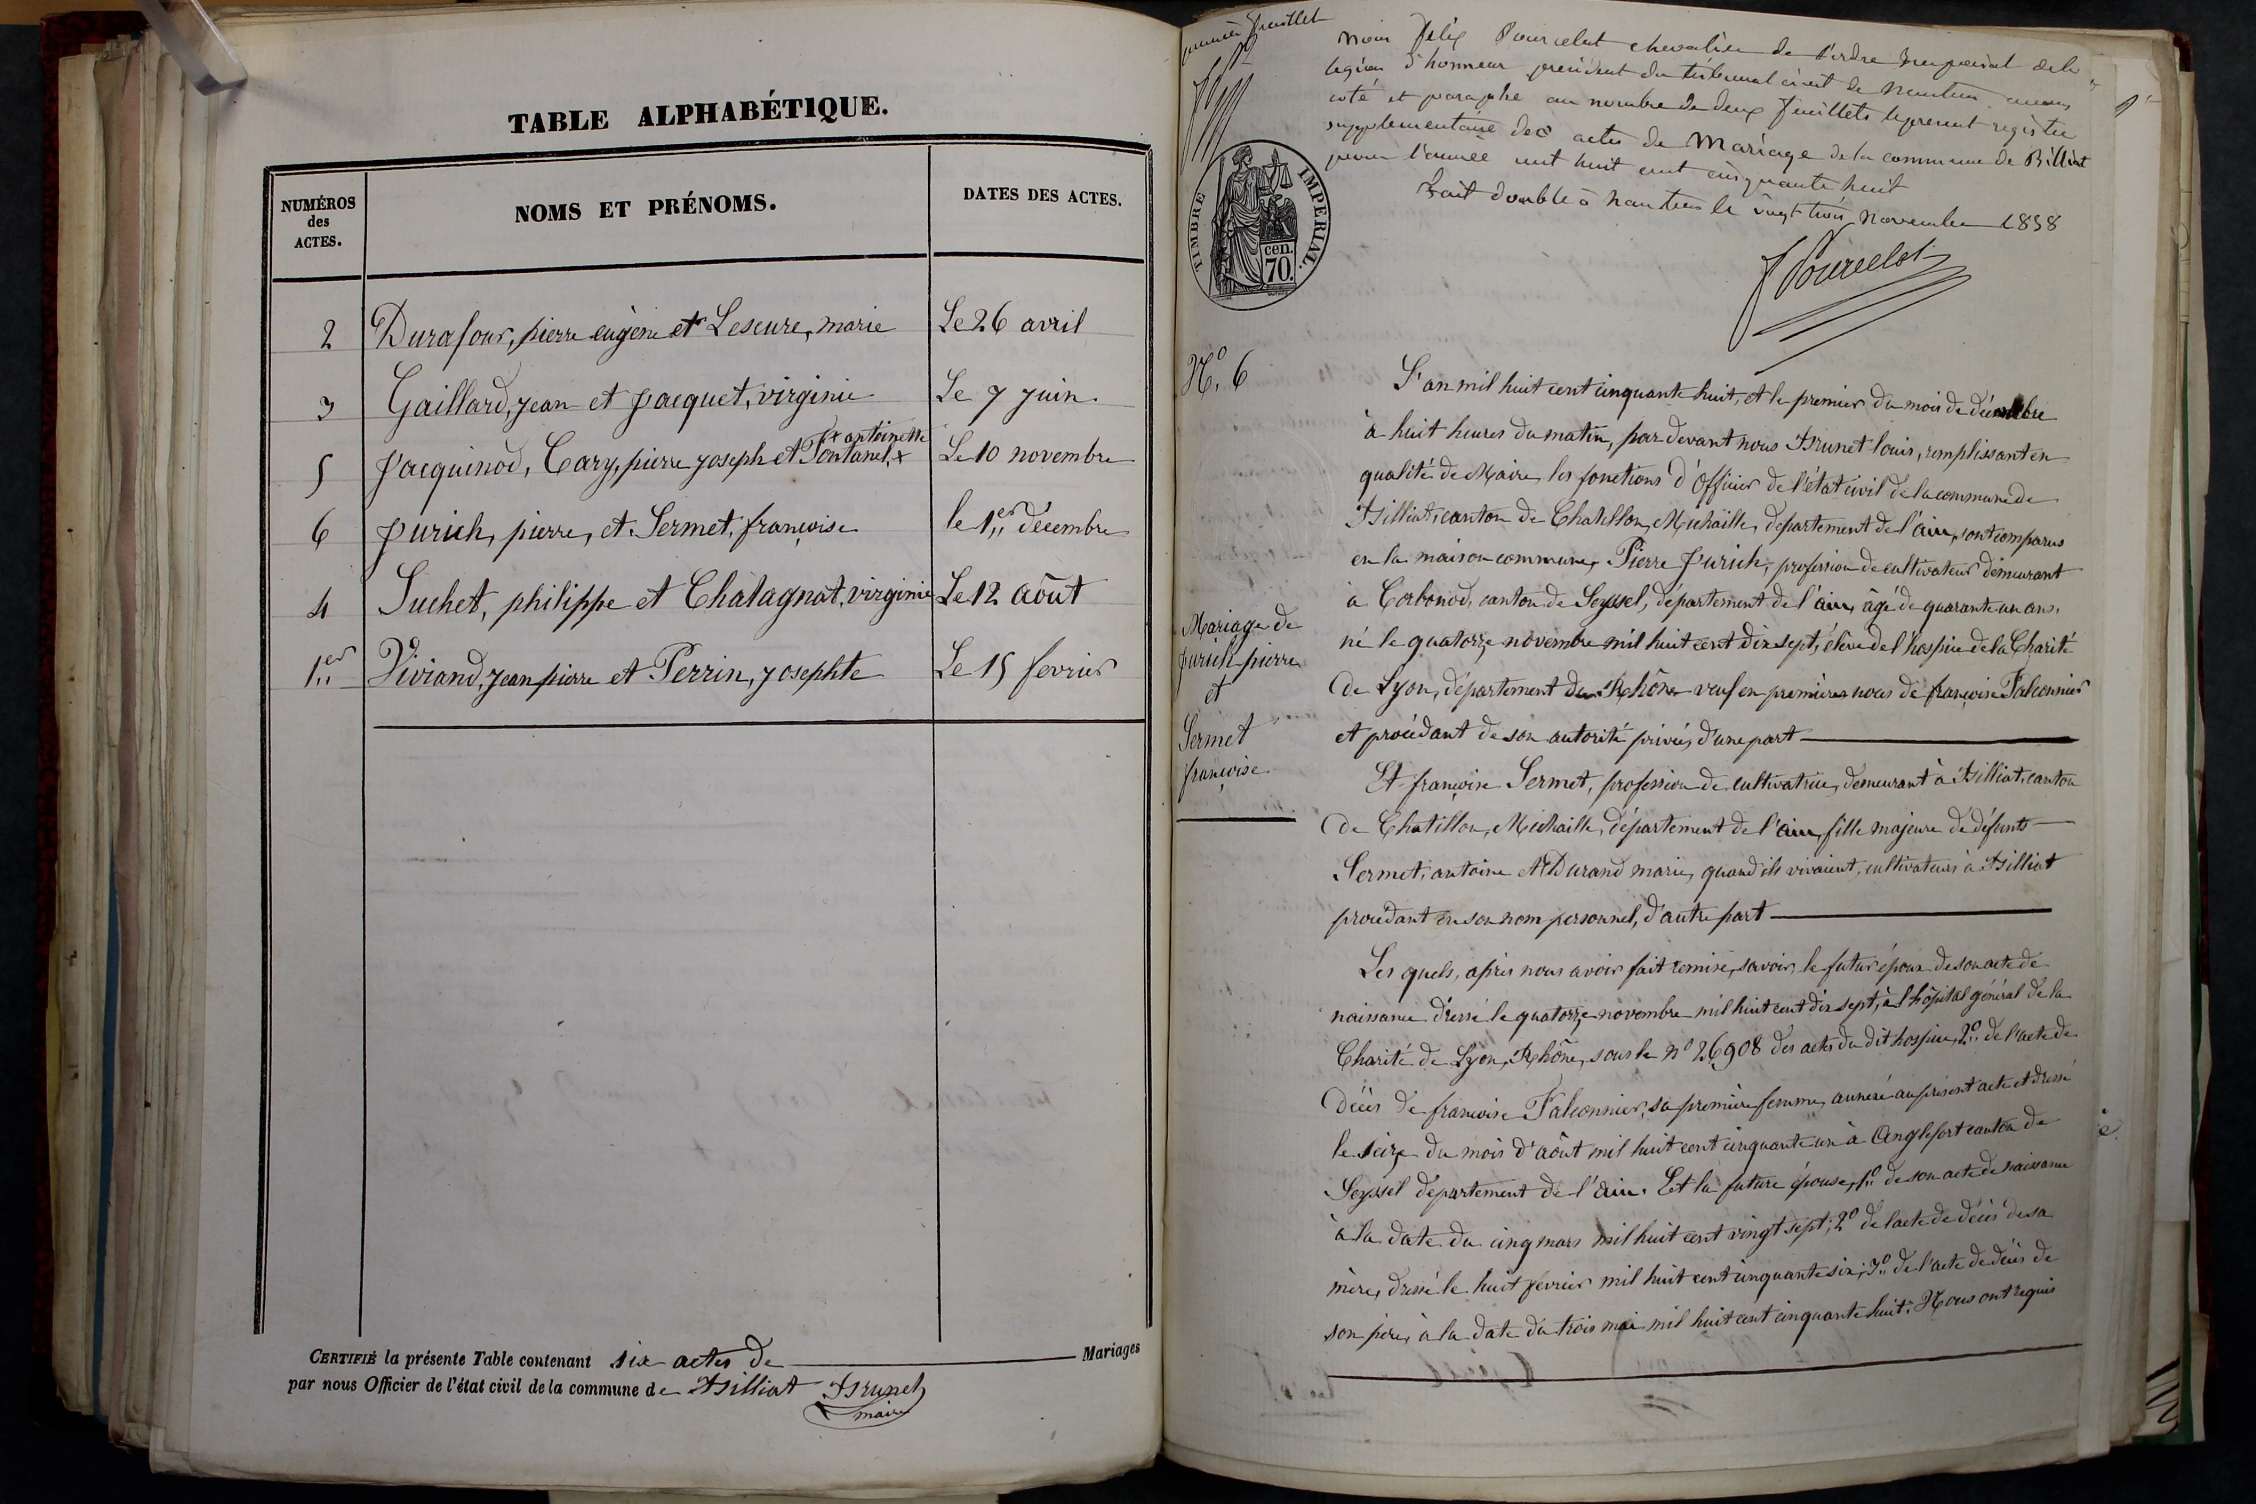 TABLE ALPHABÉTIQUE.
NUMÉROS des ACTES.
NOMS ET PRÉNOMS.
DATES DES ACTES.
2 Durafour, pierre eugène et Leseure, marie Le 26 avril
3 Gaillard, jean et jacquet, virginie Le 7 juin.
+ antoinette
5 Jacquinod, Cary, pierre joseph et Fontanel, + Le 10 novembre
6 jurich, pierre, et Sermet, françoise le 1er décembre
4 Suchet, philippe et Chatagnat, virginie Le 12 août
1er Viviand, jean pierre et Perrin, josephte Le 15 fevrier
CERTIFIÉ la présente Table contenant six actes de Mariages
par nous Officier de l'état civil de la commune de Billiat Brunet
maire
premier feuillet
nous Félix Pourcelot chevalier de l'ordre Imperial de la
legion d'honneur president du tribunal civil de Nantua avons
coté et paraphé au nombre de deux feuillets le present registre
supplementaire des actes de Mariage de la commune de Billiat
pour l'année mil huit cent cinquante huit
Fait double à Nantua le vingt trois novembre 1858
F Pourcelot
TIMBRE IMPÉRIAL.
cen. 70.
No. 6
Mariage de
jurich pierre
et
Sermet
françoise.
L'an mil huit cent cinquante huit, et le premier du mois de décembre
à huit heures du matin, par devant nous Brunet louis, remplissant en
qualité de Maire, les fonctions d'Officier de l'état civil de la commune de
Billiat, canton de Chatillon, Michaille, departement de l'ain, sont comparus
en la maison commune, Pierre jurich, profession de cultivateur demeurant
à Corbonod, canton de Seyssel, département de l'ain, âgé de quarante un ans,
né le quatorze novembre mil huit cent dix sept, élève de l'hospice de la Charité
de Lyon, département du Rhône veuf en premières noces de françoise Falconnier
et procédant de son autorité privée, d'une part
Et françoise Sermet, profession de cultivatrice, demeurant à Billiat, canton
de Chatillon, Michaille, département de l'ain, fille majeure de défunts
Sermet, antoine et Durand marie, quand ils vivaient, cultivateurs à Billiat
procédant en son nom personnel, d'autre part
Les quels, après nous avoir fait remise, savoir, le futur époux de son acte de
naissance dressé le quatorze novembre mil huit cent dix sept, à l'hôpital général de la
Charité de Lyon, Rhône, sous le no 26908 des actes du dit hospice, 2o. de l'acte de
décès de françoise Falconnier, sa première femme, annexé au présent acte et dressé
le seize du mois d'août mil huit cent cinquante un à Anglefort canton de
Seyssel département de l'ain. Et la future épouse, 1o de son acte de naissance
à la date du cinq mars mil huit cent vingt sept; 2o de l'acte de décès de sa
mère, dressé le huit février mil huit cent cinquante six; 3o. de l'acte de décès de
son père, à la date du trois mai mil huit cent cinquante huit. Nous ont requis